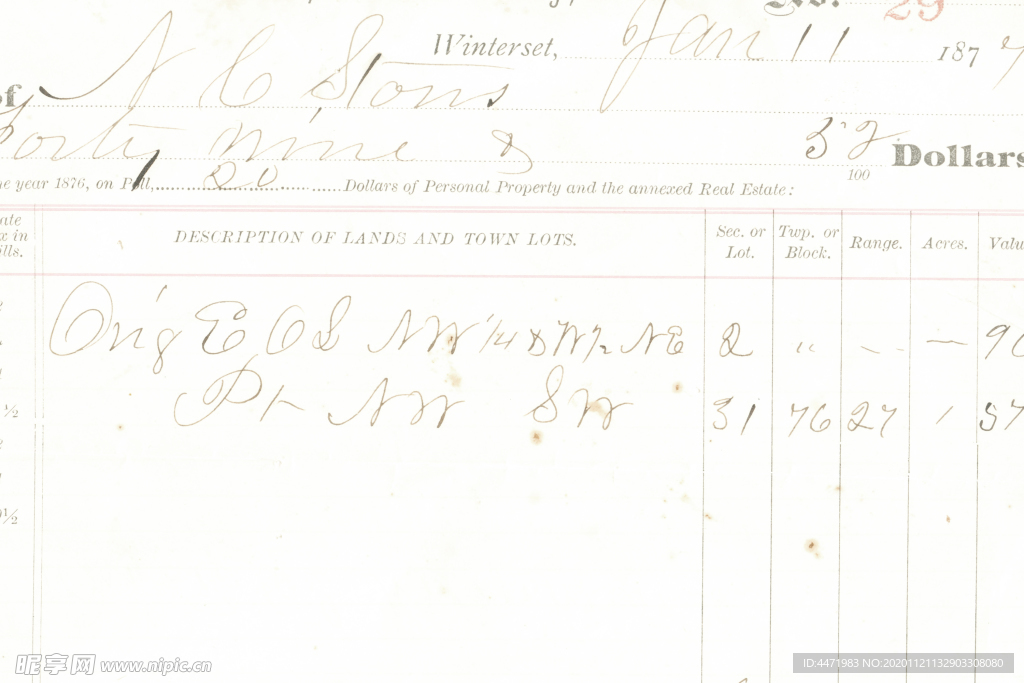 No. 29
Winterset, Jan 11 187
of N C Stons
Forty nine & 52/100 Dollars
he year 1876, on Poll, 20 Dollars of Personal Property and the annexed Real Estate:
ate x in ills. DESCRIPTION OF LANDS AND TOWN LOTS. Sec. or Lot. Twp. or Block. Range. Acres. Valu
Orig E O L NW 1/4 & W 1/2 NE 2 " — — 90
½ Pt NW SW 31 76 27 1 57
½
昵享网 www.nipic.cn
ID:4471983 NO:20201121132903308080